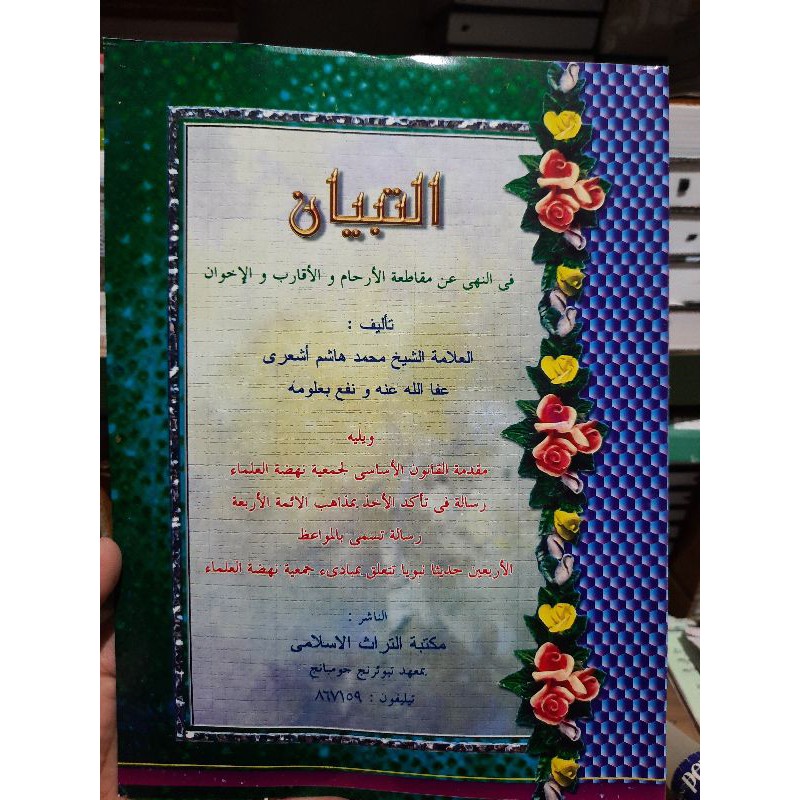 التبيان
فى النهى عن مقاطعة الأرحام و الأقارب و الإخوان
تأليف :
العلامة الشيخ محمد هاشم أشعرى
عفا الله عنه و نفع بعلومه
ويليه
مقدمة القانون الأساسى لجمعية نهضة العلماء
رسالة فى تأكد الأخذ بمذاهب الائمة الأربعة
رسالة تسمى بالمواعظ
الأربعين حديثا نبويا تتعلق بمبادىء جمعية نهضة العلماء
الناشر :
مكتبة التراث الاسلامى
بمعهد تبوئرنج جومبانج
تيليفون : ٨٦٧١٥٩